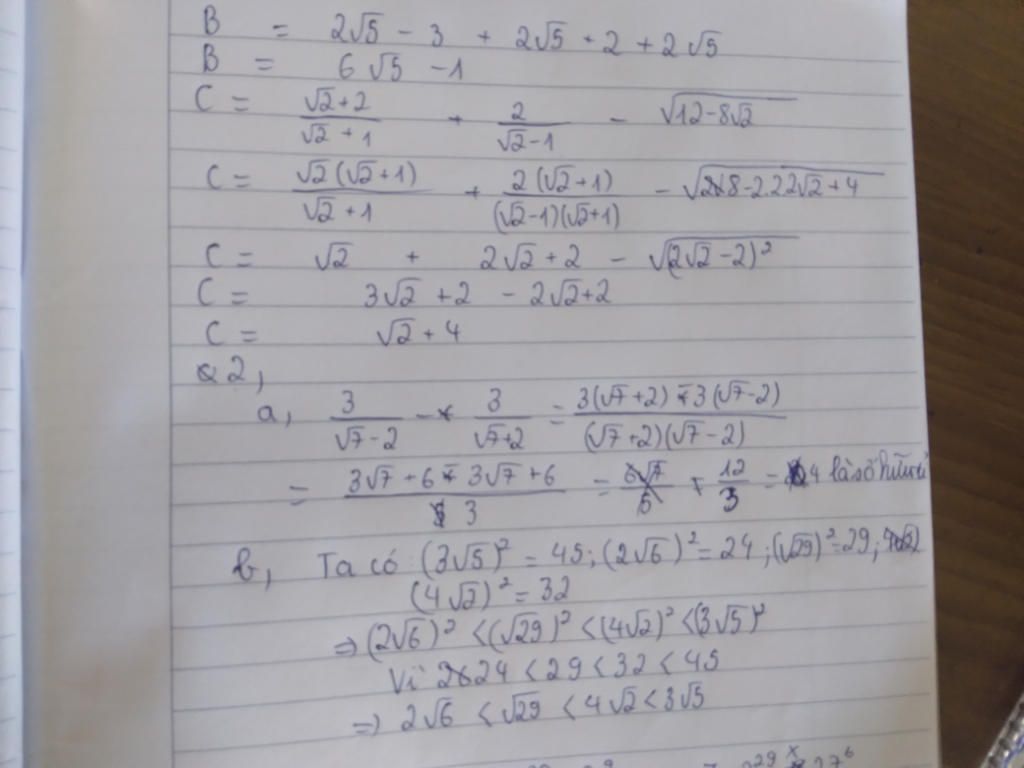 B = 2√5 - 3 + 2√5 + 2 + 2√5
B = 6√5 - 1
C = (√2+2)/(√2+1) + 2/(√2-1) - √(12-8√2)
C = √2(√2+1)/(√2+1) + 2(√2+1)/((√2-1)(√2+1)) - √(8-2.2.2√2+4)
C = √2 + 2√2+2 - √((2√2-2)²)
C = 3√2+2 - 2√2+2
C = √2+4
2,
a, 3/(√7-2) - 3/(√7+2) = (3(√7+2) - 3(√7-2))/((√7+2)(√7-2))
= (3√7+6 - 3√7+6)/3 = 12/3 = 4 là số hữu tỉ
b, Ta có: (3√5)² = 45; (2√6)² = 24; (√29)² = 29;
(4√2)² = 32
⇒ (2√6)² < (√29)² < (4√2)² < (3√5)²
Vì 24 < 29 < 32 < 45
⇒ 2√6 < √29 < 4√2 < 3√5